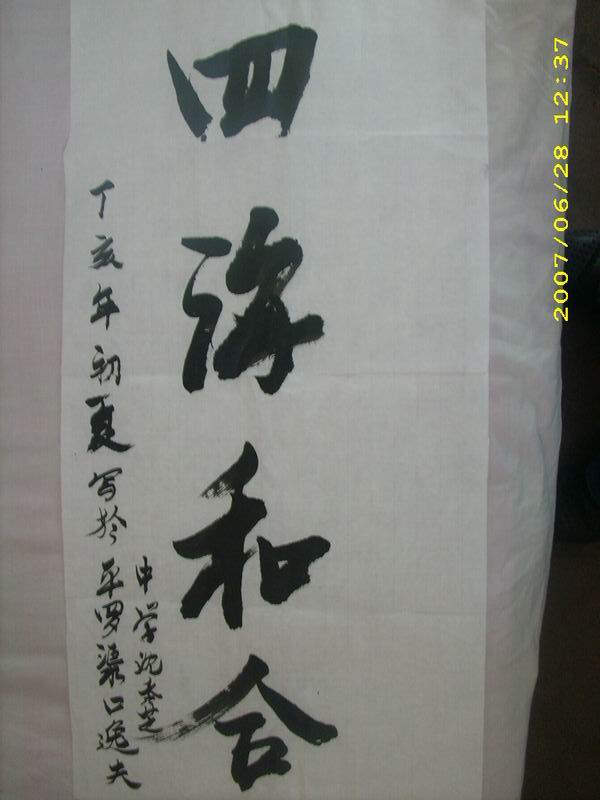 四海和合
丁亥年初夏写於平罗渠口逸夫
中学沈芝
2007/06/28 12:37